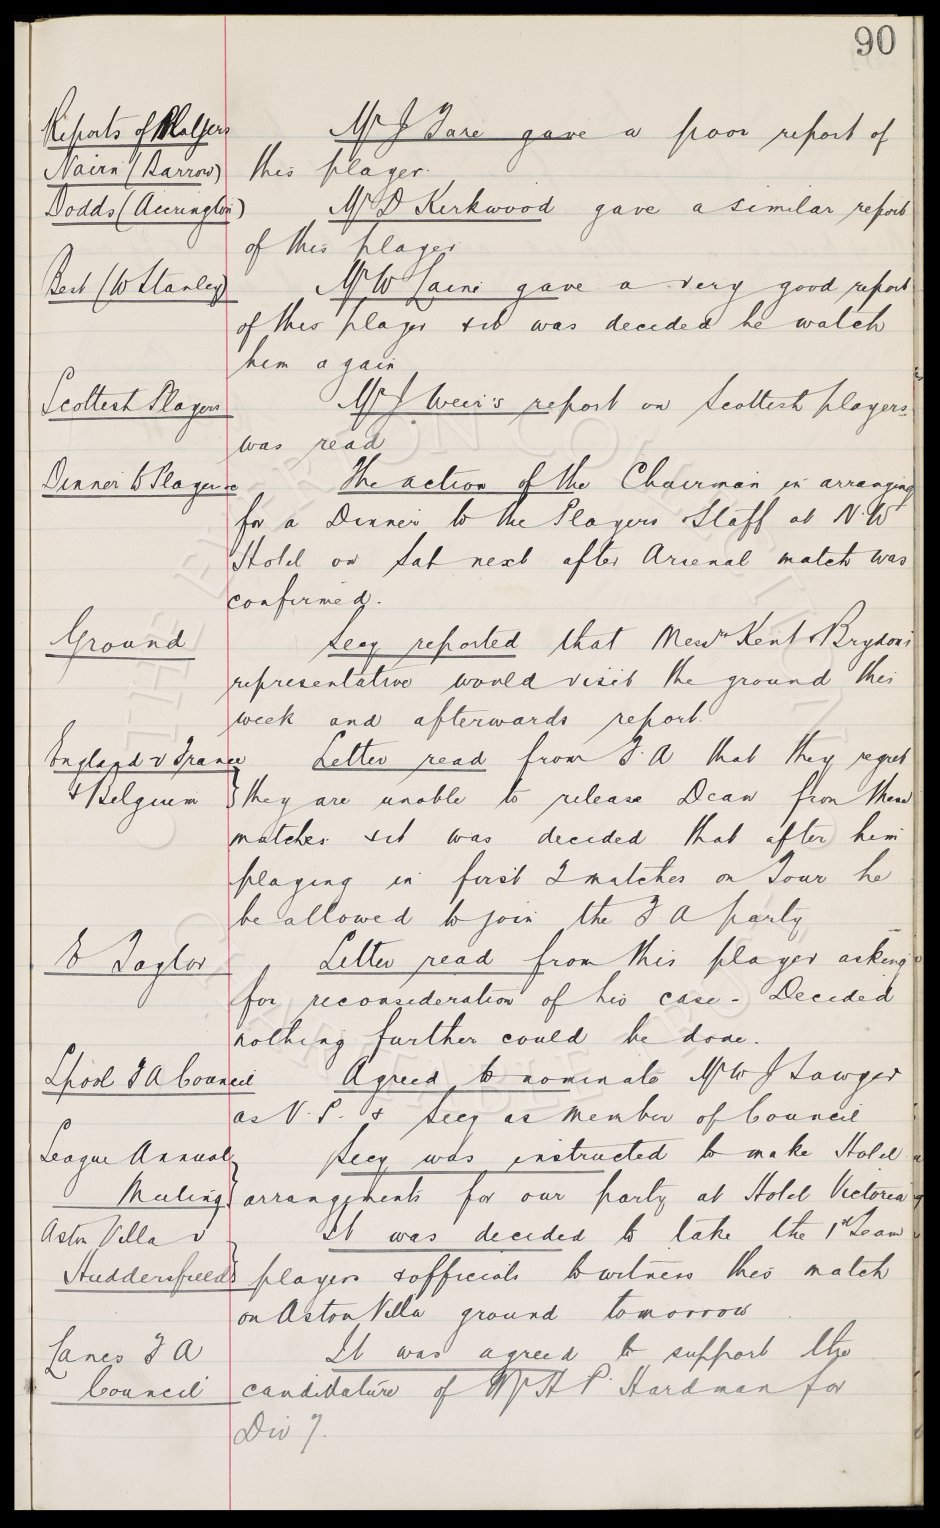 90
Reports of Players
Mr J Fare gave a poor report of
Nairn (Barrow)
this player.
Dodds (Accrington)
Mr D Kirkwood gave a similar report
of this player
Best (W Stanley)
Mr W Laine gave a very good report
of this player & it was decided he watch
him again
Scottish Players
Mr J Weir's report on Scottish players
was read
Dinner to Players &c
The action of the Chairman in arranging
for a Dinner to the Players & Staff at N.W
Hotel on Sat next after Arsenal match was
confirmed.
Ground
Secy reported that Messrs Kent & Brydon's
representative would visit the ground this
week and afterwards report.
England v France
Letter read from F.A that they regret
& Belgium
they are unable to release Dean from these
matches & it was decided that after him
playing in first 2 matches on Tour he
be allowed to join the F.A party
E Taylor
Letter read from this player asking
for reconsideration of his case - Decided
nothing further could be done.
Lpool F A Council
Agreed to nominate Mr W J Sawyer
as V.P. & Secy as member of Council
League Annual
Secy was instructed to make Hotel
Meeting
arrangements for our party at Hotel Victoria
Aston Villa v
It was decided to take the 1st Team
Huddersfield
players & officials to witness this match
on Aston Villa ground tomorrow
Lancs F A
It was agreed to support the
Council
candidature of Mr H P. Hardman for
Div 7.
THE EVERTON COLLECTION
CHARITABLE TRUST